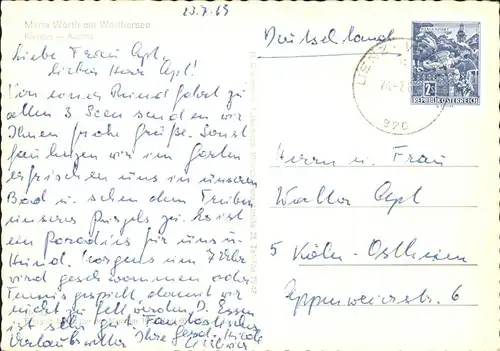 23.7.69
Maria Wörth am Wörthersee
Kärnten — Austria
Liebe Frau Apl,
lieber Herr Apl!
Von einer Rundfahrt zu
allen 3 Seen senden wir
Ihnen frohe Grüße. Sonst
faulenzen wir im Garten
erfrischen uns in unserem
Bad u. sehen dem Treiben
unseres Purzels zu. Es ist
ein Paradies für uns u.
Hund. Morgens um
wird geschwommen oder
Tennis gespielt, damit wir
nicht zu fett werden. D. Essen
ist sehr gut. Fantastisches
Urlaubswetter. Ihre
Deutschland
LIENZ
976
2 S
REPUBLIK ÖSTERREICH
Herrn u. Frau
Walter Apl
5 Köln-Ostheim
Appenweierstr. 6